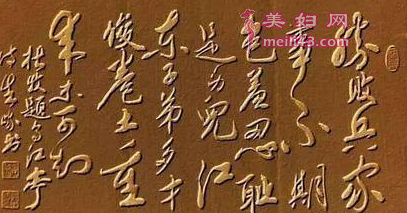 美妇网
meili43.com
胜败兵家
事不期
包羞忍耻
是男儿江
东子弟多才
俊卷土重
来未可知
杜牧题乌江亭